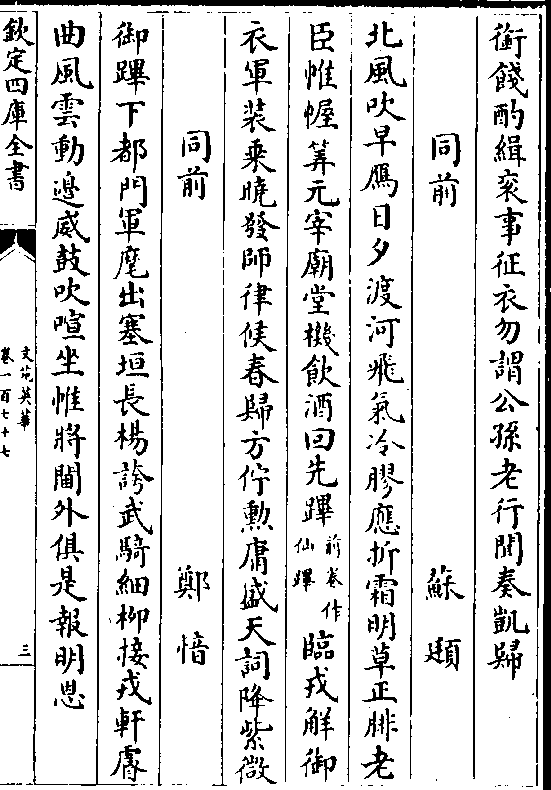 銜餞酌緝衮事征衣勿謂公孫老行聞奏凱歸
同前 蘇頲
北風吹早鴈日夕渡河飛氣冷膠應折霜明草正腓老
臣惟幄筭元宰廟堂機飲酒回先蹕前卷作仙蹕臨戎解御
衣軍装乗曉發師律候春歸方佇勲庸盛天詞降紫微
同前 鄭愔
御蹕下都門軍麾出塞垣長楊誇武騎細柳接戎軒睿
曲風雲動邉威鼓吹喧坐惟將閫外俱是報明恩
欽定四庫全書
文苑英華
卷一百七十七
三